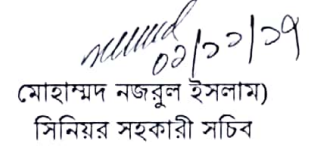 ০১/১১/১৭
মোহাম্মদ নজরুল ইসলাম)
সিনিয়র সহকারী সচিব